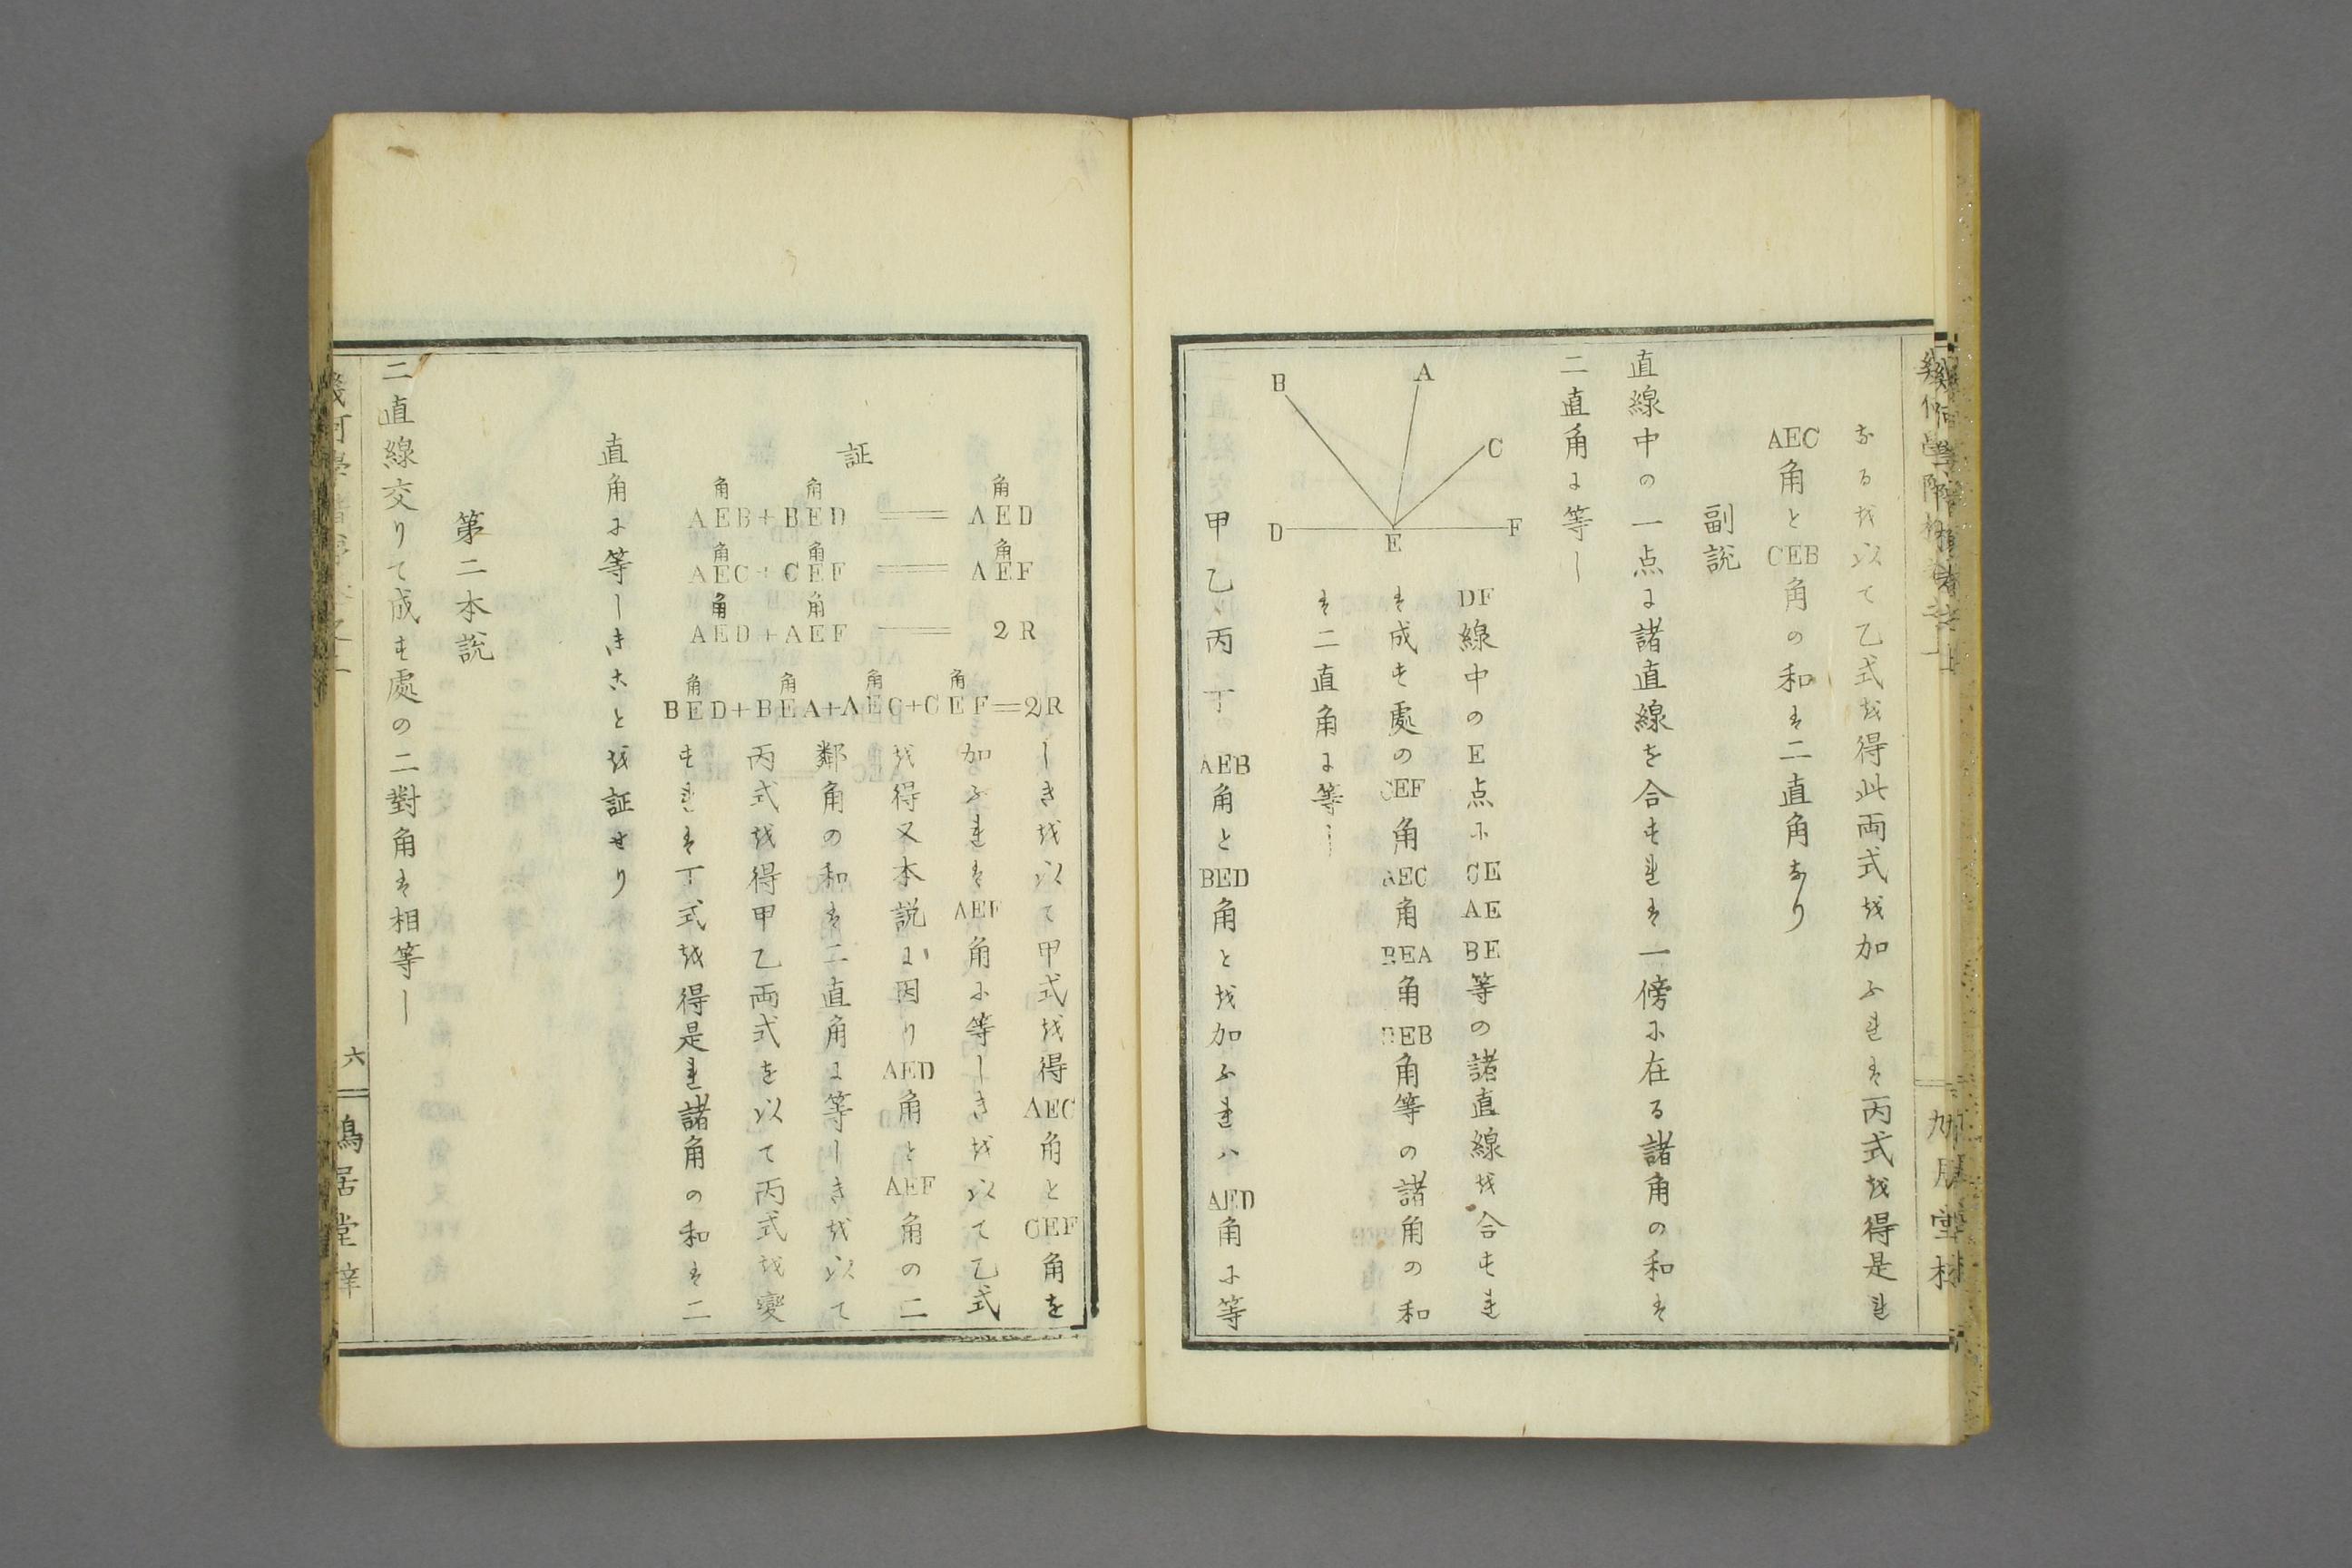 なるを以て乙式を得此両式を加ふれは丙式を得是れ
AEC角とCEB角の和は二直角なり
副説
直線中の一点に諸直線を合すれは一傍に在る諸角の和は
二直角に等し
B
A
C
D
E
F
DF線中のE点にCE AE BE等の諸直線を合すれ
は成す處のCEF角AEC角BEA角 角等の諸角の和
は二直角に等し
甲 乙 丙 丁 AEB角とBED角とを加ふれハAED角に等
しきを以て甲式を得AEC角とCEF角を
加ふれはAEF角に等しきを以て乙式
を得又本説に因りAED角とAEF角の二
鄰角の和は二直角に等しきを以て
丙式を得甲乙両式を以て丙式を變
すれは丁式を得是れ諸角の和は二
証
角 角 角
AEB+BED=AED
角 角 角
AEC+CEF=AEF
角 角
AED+AEF=2R
角 角 角 角
BED+BEA+AEC+CEF=2R
直角に等しきことを証せり
第二本説
二直線交りて成す處の二對角は相等し
六